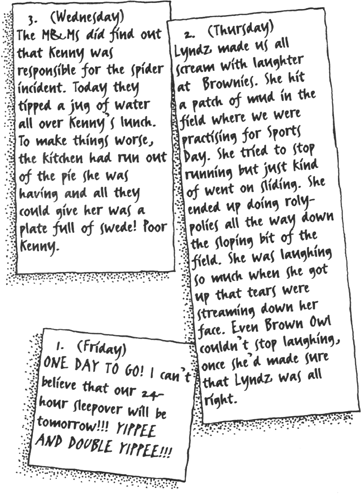 3. (Wednesday)
The M&Ms did find out
that Kenny was
responsible for the spider
incident. Today they
tipped a jug of water
all over Kenny's lunch.
To make things worse,
the kitchen had run out
of the pie she was
having and all they
could give her was a
plate full of swede! Poor
Kenny.
2. (Thursday)
Lyndz made us all
scream with laughter
at Brownies. She hit
a patch of mud in the
field where we were
practising for Sports
Day. She tried to stop
running but just kind
of went on sliding. She
ended up doing roly-
polies all the way down
the sloping bit of the
field. She was laughing
so much when she got
up that tears were
streaming down her
face. Even Brown Owl
couldn't stop laughing,
once she'd made sure
that Lyndz was all
right.
1. (Friday)
ONE DAY TO GO! I can't
believe that our 24-
hour sleepover will be
tomorrow!!! YIPPEE
AND DOUBLE YIPPEE!!!